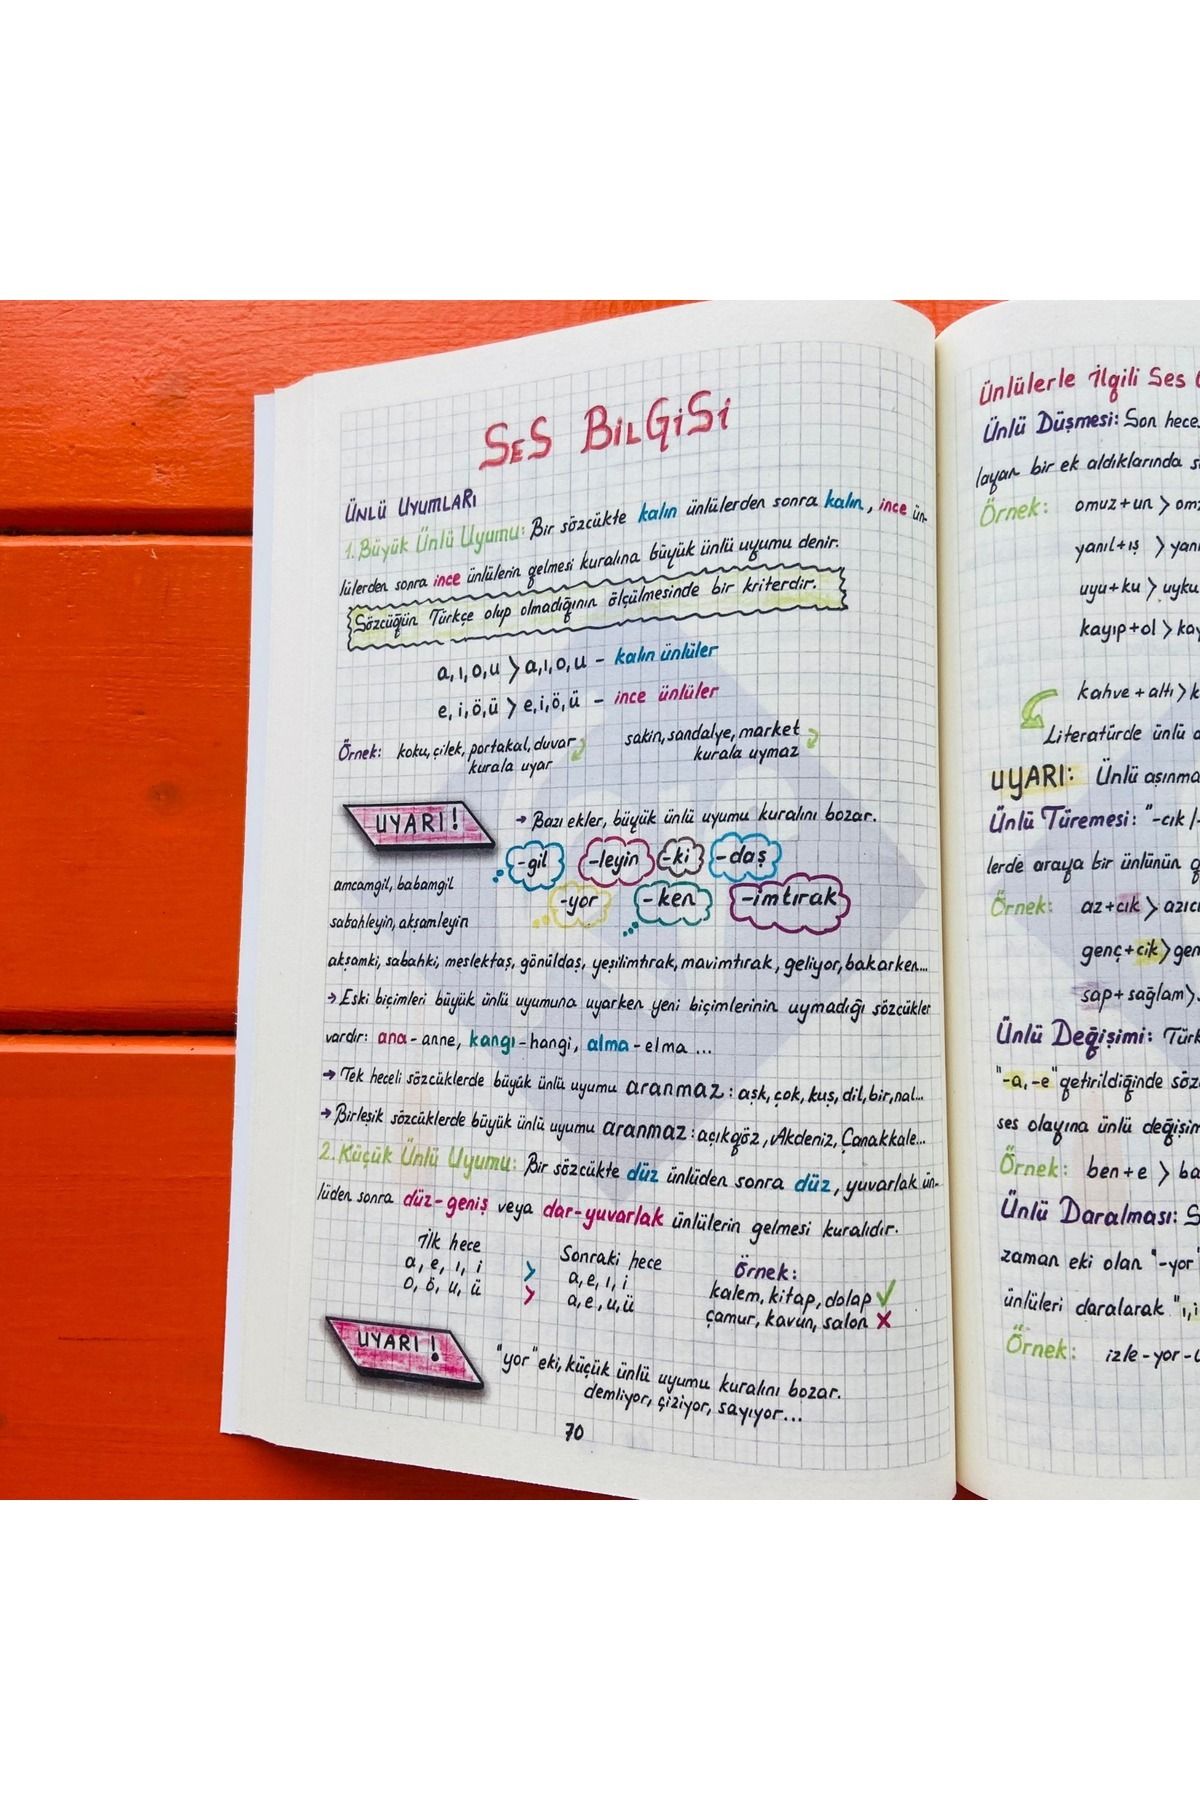 SES BİLGİSİ
ÜNLÜ UYUMLARI
1. Büyük Ünlü Uyumu: Bir sözcükte kalın ünlülerden sonra kalın, ince ün-
lülerden sonra ince ünlülerin gelmesi kuralına büyük ünlü uyumu denir.
Sözcüğün Türkçe olup olmadığının ölçülmesinde bir kriterdir.
a, ı, o, u > a, ı, o, u - kalın ünlüler
e, i, ö, ü > e, i, ö, ü - ince ünlüler
Örnek: koku, çilek, portakal, duvar
kurala uyar
sakin, sandalye, market
kurala uymaz
UYARI!
→ Bazı ekler, büyük ünlü uyumu kuralını bozar.
-gil -leyin -ki -daş
-yor -ken -imtırak
amcamgil, babamgil
sabahleyin, akşamleyin
akşamki, sabahki, meslektaş, gönüldaş, yeşilimtırak, mavimtırak, geliyor, bakarken...
→ Eski biçimleri büyük ünlü uyumuna uyarken yeni biçimlerinin uymadığı sözcükler
vardır: ana - anne, kangı - hangi, alma - elma ...
→ Tek heceli sözcüklerde büyük ünlü uyumu aranmaz: aşk, çok, kuş, dil, bir, nal...
→ Birleşik sözcüklerde büyük ünlü uyumu aranmaz: açıkgöz, Akdeniz, Çanakkale...
2. Küçük Ünlü Uyumu: Bir sözcükte düz ünlüden sonra düz, yuvarlak ün-
lüden sonra düz-geniş veya dar-yuvarlak ünlülerin gelmesi kuralıdır.
İlk hece
a, e, ı, i
o, ö, u, ü
>
>
Sonraki hece
a, e, ı, i
a, e, u, ü
Örnek:
kalem, kitap, dolap ✓
çamur, kavun, salon ✗
UYARI!
"yor" eki, küçük ünlü uyumu kuralını bozar.
demliyor, çiziyor, sayıyor...
70
Ünlülerle İlgili Ses
Ünlü Düşmesi: Son hece
layan bir ek aldıklarında
Örnek: omuz + un >
yanıl + ış >
uyu + ku > uyku
kayıp + ol >
kahve + altı >
Literatürde ünlü
UYARI: Ünlü aşınma
Ünlü Türemesi: "-cık
lerde araya bir ünlünün
Örnek: az + cık >
genç + cik >
sap + sağlam >
Ünlü Değişimi:
"-a, -e" getirildiğinde
ses olayına ünlü
Örnek: ben + e >
Ünlü Daralması:
zaman eki olan "-yor"
ünlüleri daralarak "ı, i
Örnek: izle - yor -